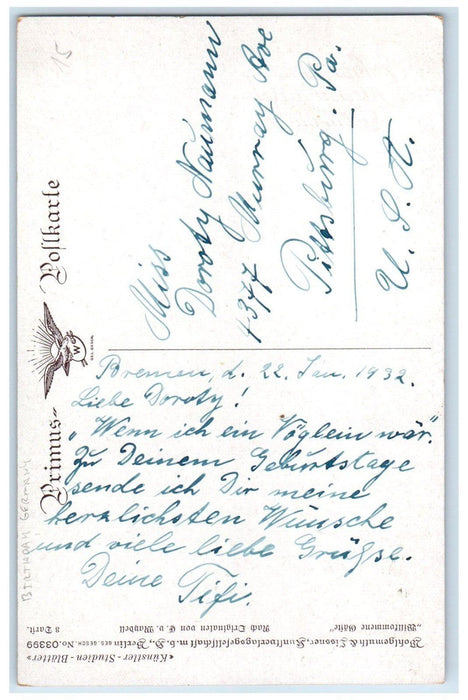 Bremen, d. 22. Jan. 1932.
Liebe Doroty!
„Wenn ich ein Vöglein wär."
Zu Deinem Geburtstage
sende ich Dir meine
herzlichsten Wünsche
und viele liebe Grüße.
Deine Fifi.
Miss
Doroty Naumann
4377 Murray Ave
Pittsburg. Pa.
U. S. A.
15
Primus-
Postkarte
W
GES. GESCH.
BIRTHDAY GERMANY
«Künstler-Studien-Blätter»
Wohlgemuth & Lissner, Kunstverlagsgesellschaft m. b. H., Berlin. GES. GESCH. No. 03399
„Willkommene Gäste" Nach Originalen von E. v. Maydell 8 Dari.